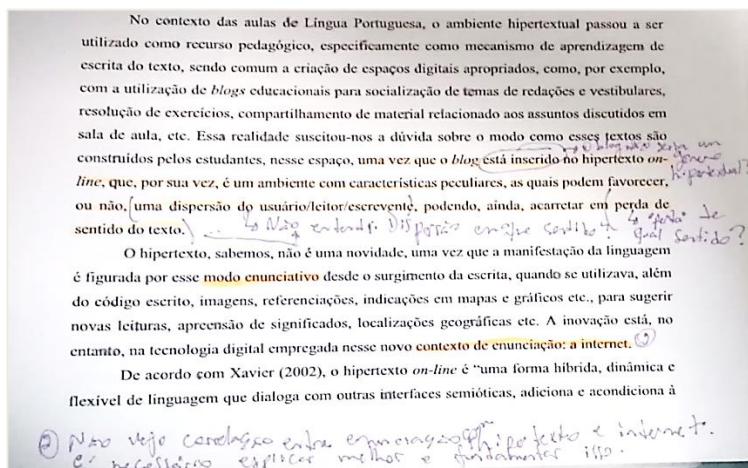 No contexto das aulas de Língua Portuguesa, o ambiente hipertextual passou a ser
utilizado como recurso pedagógico, especificamente como mecanismo de aprendizagem de
escrita do texto, sendo comum a criação de espaços digitais apropriados, como, por exemplo,
com a utilização de blogs educacionais para socialização de temas de redações e vestibulares,
resolução de exercícios, compartilhamento de material relacionado aos assuntos discutidos em
sala de aula, etc. Essa realidade suscitou-nos a dúvida sobre o modo como esses textos são
o blog não seria um
construídos pelos estudantes, nesse espaço, uma vez que o blog está inserido no hipertexto on-
gênero
hipertextual?
line, que, por sua vez, é um ambiente com características peculiares, as quais podem favorecer,
ou não, uma dispersão do usuário/leitor/escrevente, podendo, ainda, acarretar em perda de
sentido do texto.
Não entendi. Dispersão em que sentido?
"perda" de
qual sentido?
O hipertexto, sabemos, não é uma novidade, uma vez que a manifestação da linguagem
é figurada por esse modo enunciativo desde o surgimento da escrita, quando se utilizava, além
do código escrito, imagens, referenciações, indicações em mapas e gráficos etc., para sugerir
novas leituras, apreensão de significados, localizações geográficas etc. A inovação está, no
entanto, na tecnologia digital empregada nesse novo contexto de enunciação: a internet.
De acordo com Xavier (2002), o hipertexto on-line é “uma forma híbrida, dinâmica e
flexível de linguagem que dialoga com outras interfaces semióticas, adiciona e acondiciona à
Não vejo correlação entre enunciação, hipertexto e internet.
É necessário explicar melhor e fundamentar isso.